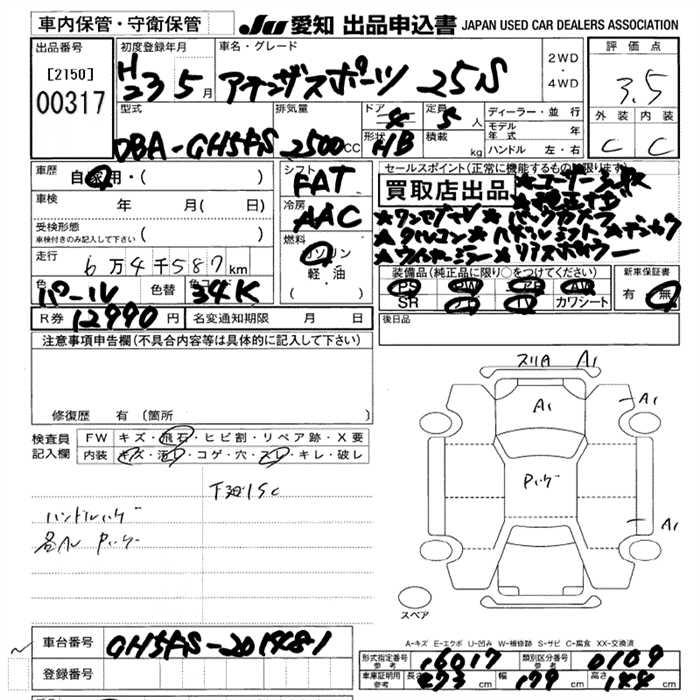 車内保管・守衛保管
JU 愛知 出品申込書 JAPAN USED CAR DEALERS ASSOCIATION
出品番号
[2150]
00317
初度登録年月
H23 5月
車名・グレード
アテンザスポーツ 25S
2WD
・
4WD
評価点
3.5
外装 内装
C C
型式
DBA-GH5FS
排気量
2500CC
ドア
4
形状
HB
定員
5人
積載
kg
ディーラー・並行
モデル年式 年
ハンドル 左・右
車歴
自家用・( )
車検
年 月( 日)
受検形態
車検付きのみ記入して下さい ( )
走行
6万4千587km
色
パール
色替
色コード
34K
シフト
FAT
冷房
AAC
燃料
ガソリン
軽・油
( )
セールスポイント(正常に機能するものに限ります)
買取店出品
★コーナーセンサー
★純正ナビ
★ワンセグTV ★バックカメラ
★クルコン ★ハーフレザーシート
★リアスポイラー
装備品(純正品に限り○をつけてください)
PS PW AB AW
SR TV カワシート
新車保証書
有 無
R券 12990円
名変通知期限 月 日
後日品
注意事項申告欄(不具合内容等は具体的に記入して下さい)
修復歴 有〔箇所
検査員
記入欄
FW キズ・飛石・ヒビ割・リペア跡・X要
内装 キズ・汚レ・コゲ・穴・スレ・キレ・破レ
下廻りSC
ハンドルハゲ
スリA A1
A1
A1
Pハゲ
A1
A1
スペア
A-キズ E-エクボ U-凹み W-補修跡 S-サビ C-腐食 XX-交換済
車台番号
登録番号
形式指定番号
参考
16017
類別区分番号
参考
0109
車庫証明用
参考
長さ
473cm
幅
179cm
高さ
144cm